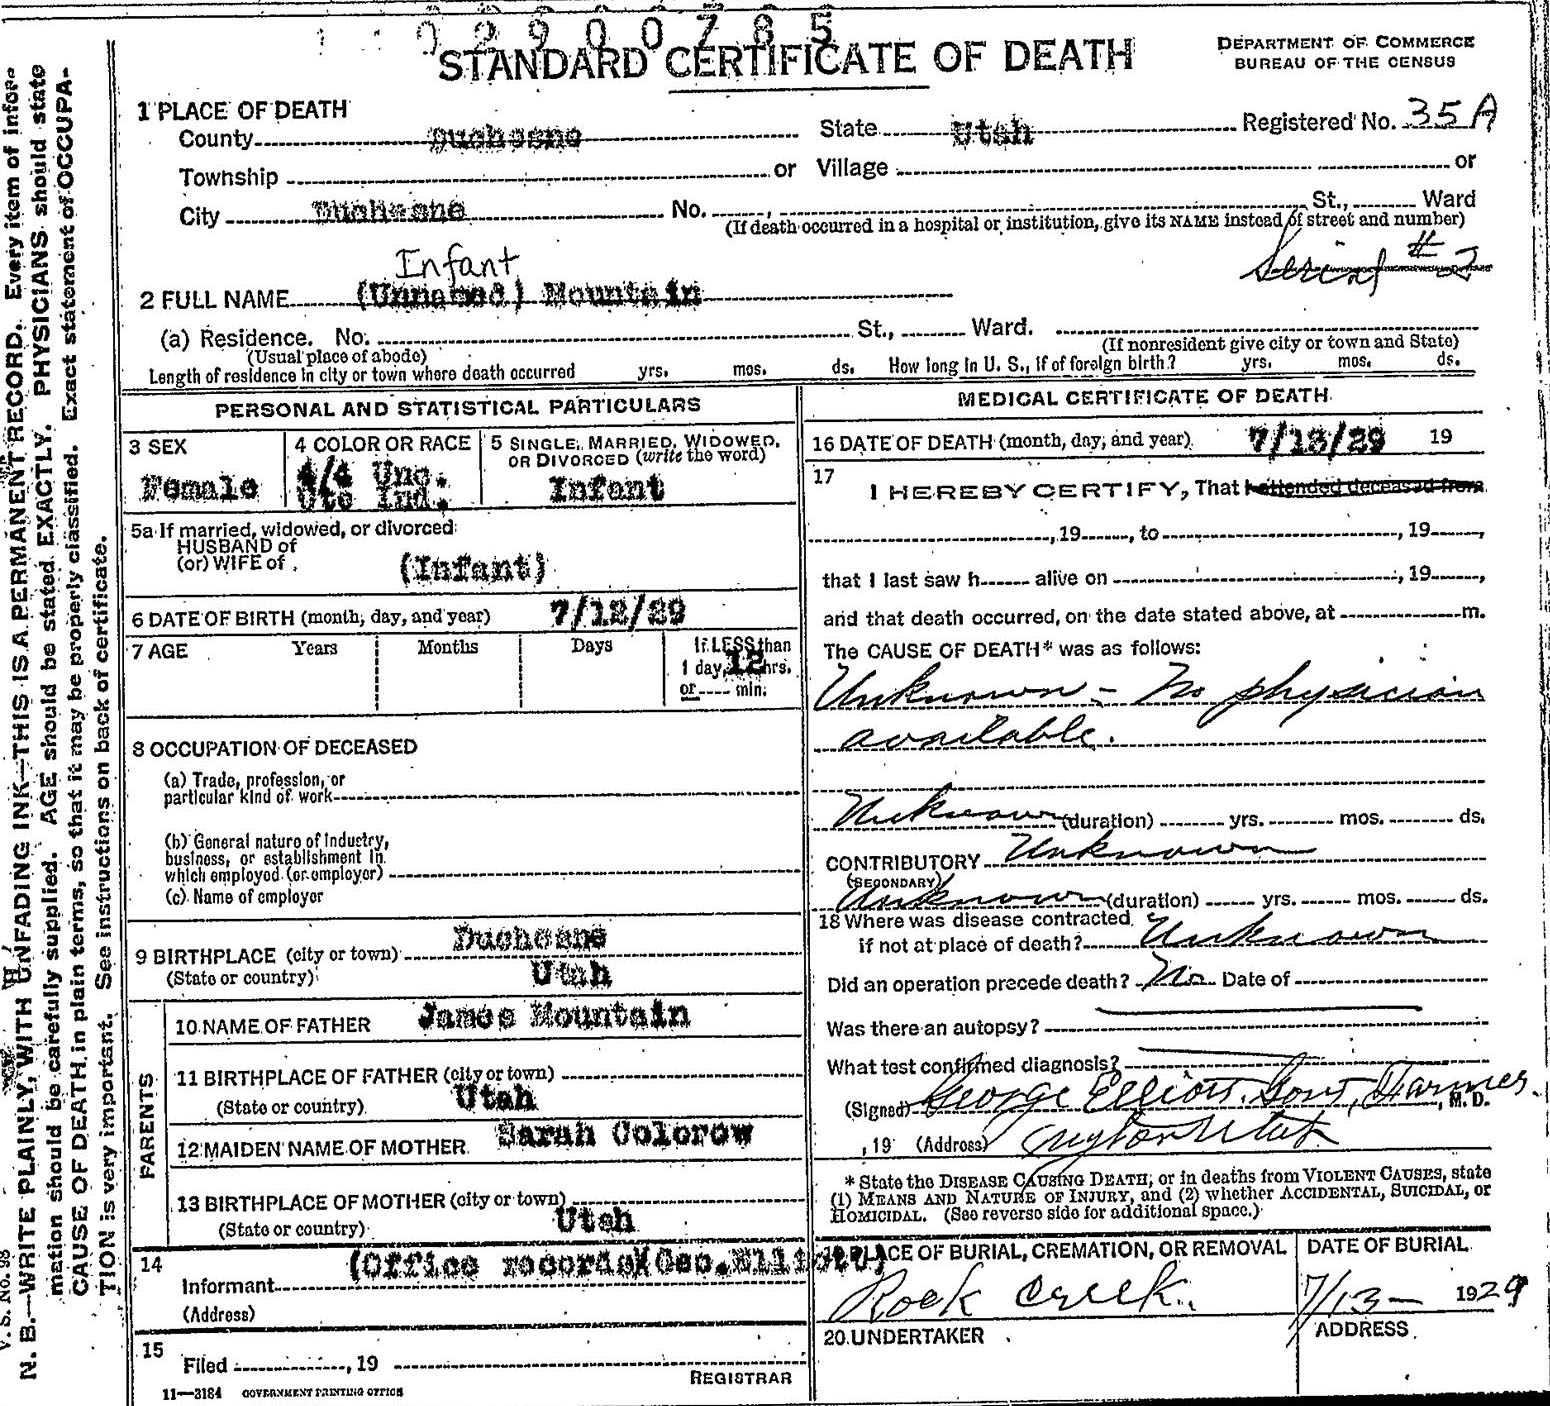 02900785
STANDARD CERTIFICATE OF DEATH
DEPARTMENT OF COMMERCE
BUREAU OF THE CENSUS
1 PLACE OF DEATH
County Duchesne State Utah Registered No. 35 A
Township or Village or
City Duchesne No. , St., Ward
(If death occurred in a hospital or institution, give its NAME instead of street and number)
Serial # 2
Infant
2 FULL NAME (Unnamed) Mountain
(a) Residence. No. St., Ward.
(Usual place of abode) (If nonresident give city or town and State)
Length of residence in city or town where death occurred yrs. mos. ds. How long in U. S., if of foreign birth? yrs. mos. ds.
PERSONAL AND STATISTICAL PARTICULARS
3 SEX
Female
4 COLOR OR RACE
4/4 Unc.
Ute Ind.
5 SINGLE, MARRIED, WIDOWED,
OR DIVORCED (write the word)
Infant
5a If married, widowed, or divorced
HUSBAND of
(or) WIFE of (Infant)
6 DATE OF BIRTH (month, day, and year) 7/12/29
7 AGE Years Months Days If LESS than
1 day, 12 hrs.
or min.
8 OCCUPATION OF DECEASED
(a) Trade, profession, or
particular kind of work
(b) General nature of industry,
business, or establishment in
which employed (or employer)
(c) Name of employer
9 BIRTHPLACE (city or town) Duchesne
(State or country) Utah
PARENTS
10 NAME OF FATHER James Mountain
11 BIRTHPLACE OF FATHER (city or town)
(State or country) Utah
12 MAIDEN NAME OF MOTHER Sarah Colorow
13 BIRTHPLACE OF MOTHER (city or town)
(State or country) Utah
14
Informant (Office records)(Geo. Elliott)
(Address)
15
Filed , 19
REGISTRAR
11—3184 GOVERNMENT PRINTING OFFICE
MEDICAL CERTIFICATE OF DEATH
16 DATE OF DEATH (month, day, and year) 7/13/29 19
17
I HEREBY CERTIFY, That I attended deceased from
, 19 , to , 19 ,
that I last saw h alive on , 19 ,
and that death occurred, on the date stated above, at m.
The CAUSE OF DEATH* was as follows:
Unknown - No physician
available.
Unknown (duration) yrs. mos. ds.
CONTRIBUTORY Unknown
(SECONDARY)
Unknown (duration) yrs. mos. ds.
18 Where was disease contracted
if not at place of death? Unknown
Did an operation precede death? No Date of
Was there an autopsy?
What test confirmed diagnosis?
(Signed) George Elliott, Govt, Farmer. , M. D.
, 19 (Address) Myton Utah
* State the DISEASE CAUSING DEATH, or in deaths from VIOLENT CAUSES, state
(1) MEANS AND NATURE OF INJURY, and (2) whether ACCIDENTAL, SUICIDAL, or
HOMICIDAL. (See reverse side for additional space.)
PLACE OF BURIAL, CREMATION, OR REMOVAL
Rock Creek.
DATE OF BURIAL
7/13 - 1929
20 UNDERTAKER
ADDRESS
V. S. No. 98
N. B.—WRITE PLAINLY, WITH UNFADING INK—THIS IS A PERMANENT RECORD. Every item of infor-
mation should be carefully supplied. AGE should be stated EXACTLY. PHYSICIANS should state
CAUSE OF DEATH in plain terms, so that it may be properly classified. Exact statement of OCCUPA-
TION is very important. See instructions on back of certificate.